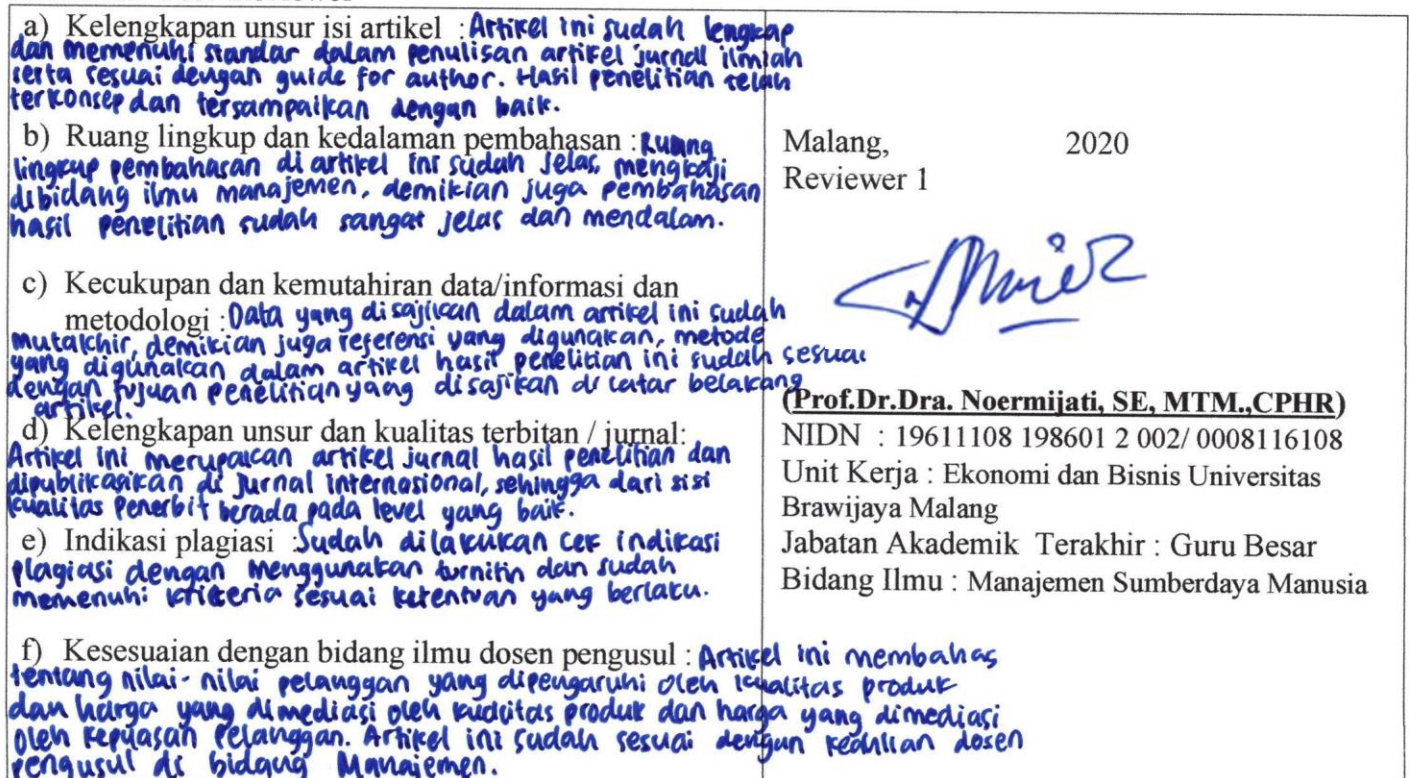 a) Kelengkapan unsur isi artikel : Artikel ini sudah lengkap
dan memenuhi standar dalam penulisan artikel jurnal ilmiah
serta sesuai dengan guide for author. Hasil penelitian telah
terkonsep dan tersampaikan dengan baik.
b) Ruang lingkup dan kedalaman pembahasan : Ruang
lingkup pembahasan di artikel ini sudah jelas, mengkaji
dibidang ilmu manajemen, demikian juga pembahasan
hasil penelitian sudah sangat jelas dan mendalam.
c) Kecukupan dan kemutahiran data/informasi dan
metodologi : Data yang disajikan dalam artikel ini sudah
mutakhir, demikian juga referensi yang digunakan, metode
yang digunakan dalam artikel hasil penelitian ini sudah sesuai
dengan tujuan penelitian yang disajikan di latar belakang
artikel.
d) Kelengkapan unsur dan kualitas terbitan / jurnal:
Artikel ini merupakan artikel jurnal hasil penelitian dan
dipublikasikan di Jurnal internasional, sehingga dari sisi
kualitas Penerbit berada pada level yang baik.
e) Indikasi plagiasi : Sudah dilakukan cek indikasi
plagiasi dengan menggunakan turnitin dan sudah
memenuhi kriteria sesuai ketentuan yang berlaku.
f) Kesesuaian dengan bidang ilmu dosen pengusul : Artikel ini membahas
tentang nilai-nilai pelanggan yang dipengaruhi oleh kualitas produk
dan harga yang dimediasi oleh kualitas produk dan harga yang dimediasi
oleh kepuasan pelanggan. Artikel ini sudah sesuai dengan keahlian dosen
pengusul di bidang Manajemen.
Malang, 2020
Reviewer 1
(Prof.Dr.Dra. Noermijati, SE, MTM.,CPHR)
NIDN : 19611108 198601 2 002/ 0008116108
Unit Kerja : Ekonomi dan Bisnis Universitas
Brawijaya Malang
Jabatan Akademik Terakhir : Guru Besar
Bidang Ilmu : Manajemen Sumberdaya Manusia